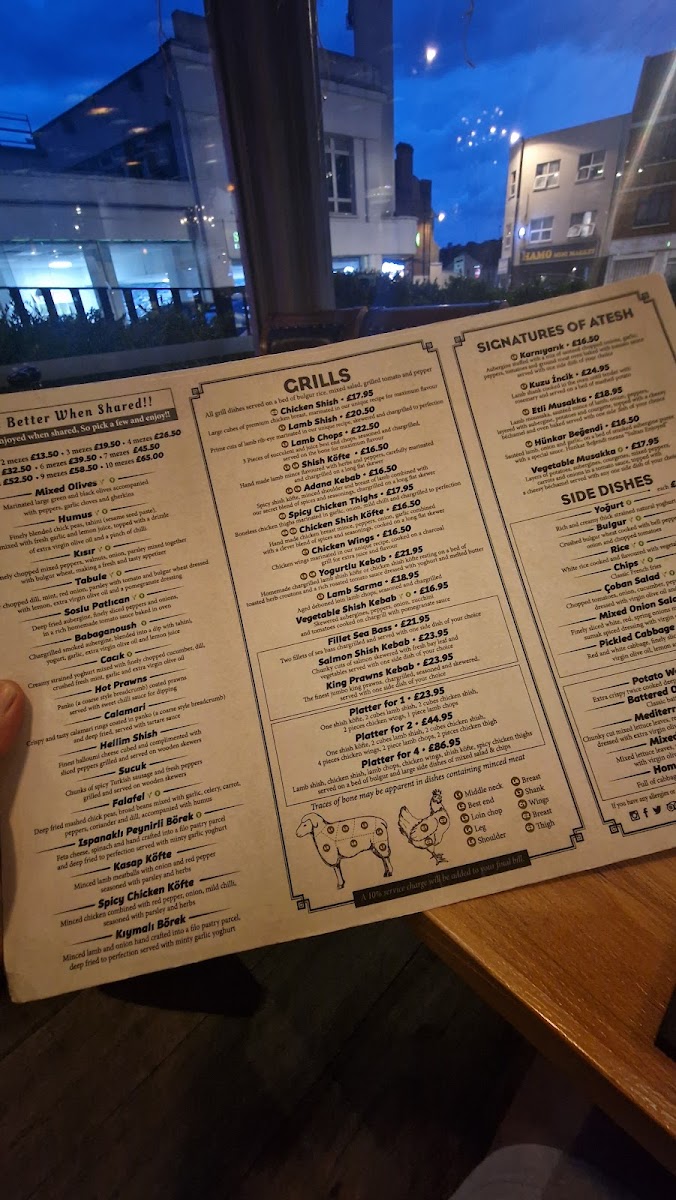 Better When Shared!!
enjoyed when shared. So pick a few and enjoy!!
2 mezes £13.50 • 3 mezes £19.50 • 4 mezes £26.50
£32.50 • 6 mezes £39.50 • 7 mezes £45.50
£52.50 • 9 mezes £58.50 • 10 mezes £65.00
Mixed Olives
Marinated large green and black olives accompanied
with peppers, garlic cloves and gherkins
Humus
Finely blended chick peas, tahini (sesame seed paste),
mixed with fresh garlic and lemon juice, topped with a drizzle
of extra virgin olive oil and a pinch of chilli
Kısır
Finely chopped mixed peppers, walnuts, onion, parsley mixed together
with bulgur wheat, making a fresh and tasty appetiser
Tabule
chopped dill, mint, red onion, parsley with tomato and bulgur wheat dressed
with lemon, extra virgin olive oil and a pomegranate dressing
Soslu Patlıcan
Deep fried aubergine, finely sliced peppers and onions,
in a rich homemade tomato sauce baked in oven
Babaganoush
Chargrilled smoked aubergine, blended into a dip with tahini,
yogurt, garlic, extra virgin olive oil and lemon juice
Cacık
Creamy strained yoghurt mixed with finely chopped cucumber, dill,
crushed fresh mint, garlic and extra virgin olive oil
Hot Prawns
Panko (a coarse style breadcrumb) coated prawns
served with sweet chilli sauce for dipping
Calamari
Crispy and tasty calamari rings coated in panko (a coarse style breadcrumb)
and deep fried, served with tartare sauce
Hellim Shish
Finest halloumi cheese cubed and complimented with
sliced peppers grilled and served on wooden skewers
Sucuk
Chunks of spicy Turkish sausage and fresh peppers
grilled and served on wooden skewers
Falafel
Deep fried mashed chick peas, broad beans mixed with garlic, celery, carrot,
peppers, coriander and dill, accompanied with humus
Ispanaklı Peynirli Börek
Feta cheese, spinach and hand crafted into a filo pastry parcel
and deep fried to perfection served with minty garlic yoghurt
Kasap Köfte
Minced lamb meatballs with onion and red pepper
seasoned with parsley and herbs
Spicy Chicken Köfte
Minced chicken combined with red pepper, onion, mild chilli,
seasoned with parsley and herbs
Kıymalı Börek
Minced lamb and onion hand crafted into a filo pastry parcel,
deep fried to perfection served with minty garlic yoghurt
GRILLS
All grill dishes served on a bed of bulgur rice, mixed salad, grilled tomato and pepper
Chicken Shish • £17.95
Large cubes of premium chicken breast, marinated in our unique recipe for maximum flavour
Lamb Shish • £20.50
Prime cuts of lamb rib-eye marinated in our unique recipe, skewered and chargrilled to perfection
Lamb Chops • £22.50
5 Pieces of succulent and juicy best end chops, seasoned and chargrilled,
served on the bone for maximum flavour
Shish Köfte • £16.50
Hand made lamb mince flavoured with herbs and peppers, carefully marinated
and chargrilled on a long flat skewer
Adana Kebab • £16.50
Spicy shish köfte, minced shoulder and breast of lamb combined with
our secret blend of spices and seasonings, chargrilled on a long flat skewer
Spicy Chicken Thighs • £17.95
Boneless chicken thighs marinated in garlic, onion, mild chilli and chargrilled to perfection
Chicken Shish Köfte • £16.50
Hand made chicken breast mince, peppers, onion, garlic combined
with a clever blend of spices and seasoning, cooked on a long flat skewer
Chicken Wings • £16.50
Chicken wings marinated in our unique recipe, cooked on a charcoal
grill for extra juice and flavour
Yogurtlu Kebab • £21.95
Homemade chargrilled lamb shish köfte or chicken shish köfte resting on a bed of
toasted herb croutons and a rich roasted tomato sauce dressed with yoghurt and melted butter
Lamb Sarma • £18.95
Aged deboned loin lamb chops, seasoned and chargrilled
Vegetable Shish Kebab • £16.95
Skewered aubergines, peppers, onion, mushrooms
and tomatoes cooked on chargrill with pomegranate sauce
Fillet Sea Bass • £21.95
Two fillets of sea bass chargrilled and served with one side dish of your choice
Salmon Shish Kebab • £23.95
Chunky cuts of salmon skewered with fresh bay leaf and
vegetables served with one side dish of your choice
King Prawns Kebab • £23.95
The finest jumbo king prawns, chargrilled, seasoned and skewered,
served with one side dish of your choice
Platter for 1 • £23.95
One shish köfte, 2 cubes lamb shish, 2 cubes chicken shish,
2 pieces chicken wings, 1 piece lamb chops
Platter for 2 • £44.95
One shish köfte, 2 cubes lamb shish, 2 cubes chicken shish,
4 pieces chicken wings, 2 piece lamb chops, 2 pieces chicken thigh
Platter for 4 • £86.95
Lamb shish, chicken shish, lamb chops, chicken wings, shish köfte, spicy chicken thighs
served on a bed of bulgur and large side dishes of mixed salad & chips
Traces of bone may be apparent in dishes containing minced meat
Middle neck
Best end
Loin chop
Leg
Shoulder
Breast
Shank
Wings
Breast
Thigh
A 10% service charge will be added to your final bill.
SIGNATURES OF ATESH
Karnıyarık • £16.50
Kuzu İncik • £24.95
Etli Musakka • £18.95
Hünkar Beğendi • £16.50
Vegetable Musakka • £17.95
SIDE DISHES
Yoğurt
each
Rich and creamy thick strained natural yoghurt
Bulgur
Crushed bulgur wheat cooked with bell pepp
onion and chopped tomatoes
Rice
White rice cooked and flavoured with vegeta
Chips
Classic French fries
Çoban Salad
Chopped tomatoes, onion, cucumber
Mixed Onion Sala
Pickled Cabbage
Red and white cabbage, finely
virgin olive oil, lemon
Potato W
Extra crispy twice cooked deep
Battered O
Mediterr
Chunky cut mixed lettuce leaves,
dressed with extra virgin olive
Mixed
Mixed lettuce leaves,
Hom
Full of cabbag
If you have any allergies
HAMO